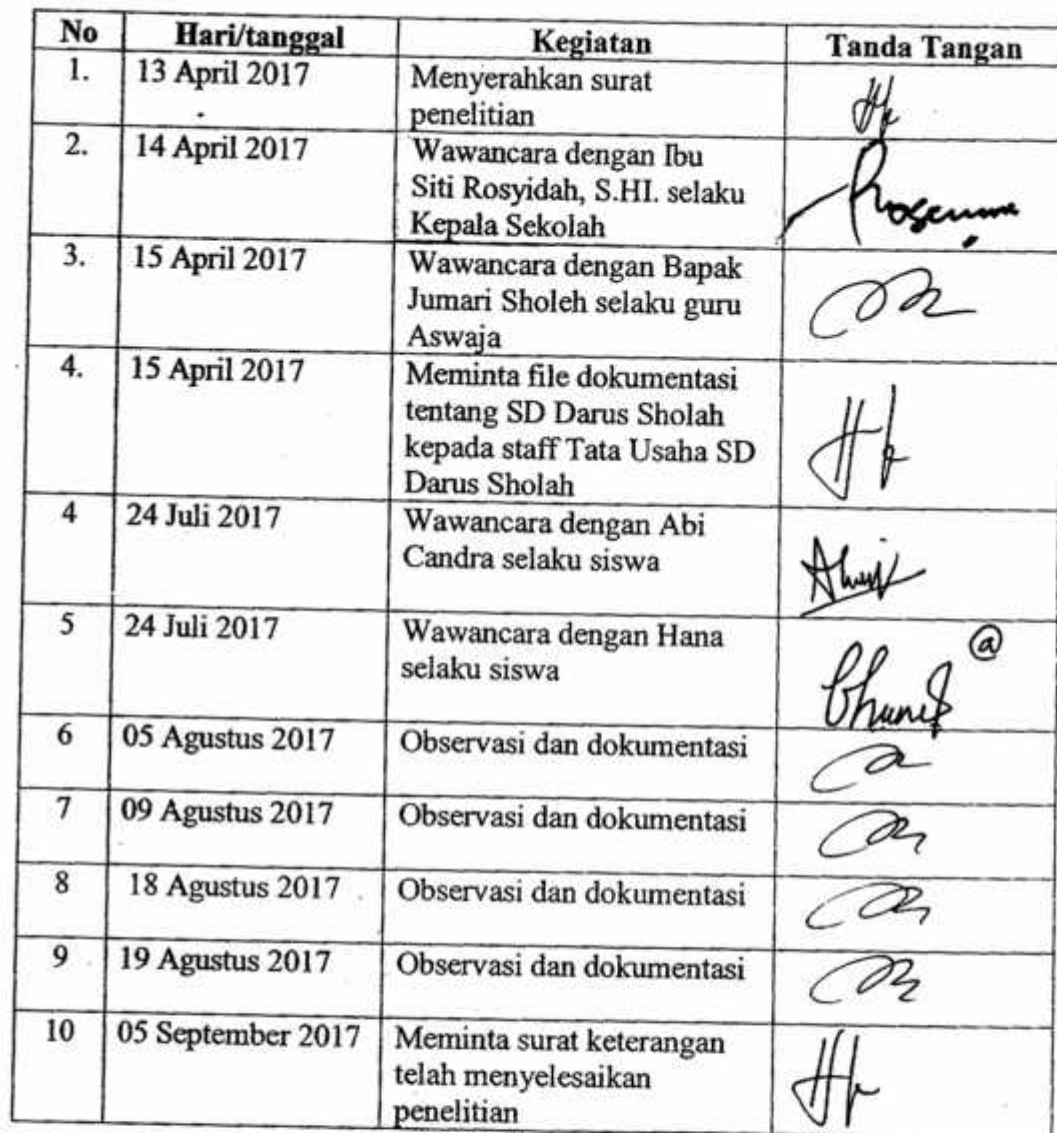 No Hari/tanggal Kegiatan Tanda Tangan
1. 13 April 2017 Menyerahkan surat
penelitian
2. 14 April 2017 Wawancara dengan Ibu
Siti Rosyidah, S.HI. selaku
Kepala Sekolah
3. 15 April 2017 Wawancara dengan Bapak
Jumari Sholeh selaku guru
Aswaja
4. 15 April 2017 Meminta file dokumentasi
tentang SD Darus Sholah
kepada staff Tata Usaha SD
Darus Sholah
4 24 Juli 2017 Wawancara dengan Abi
Candra selaku siswa
5 24 Juli 2017 Wawancara dengan Hana
selaku siswa
6 05 Agustus 2017 Observasi dan dokumentasi
7 09 Agustus 2017 Observasi dan dokumentasi
8 18 Agustus 2017 Observasi dan dokumentasi
9 19 Agustus 2017 Observasi dan dokumentasi
10 05 September 2017 Meminta surat keterangan
telah menyelesaikan
penelitian